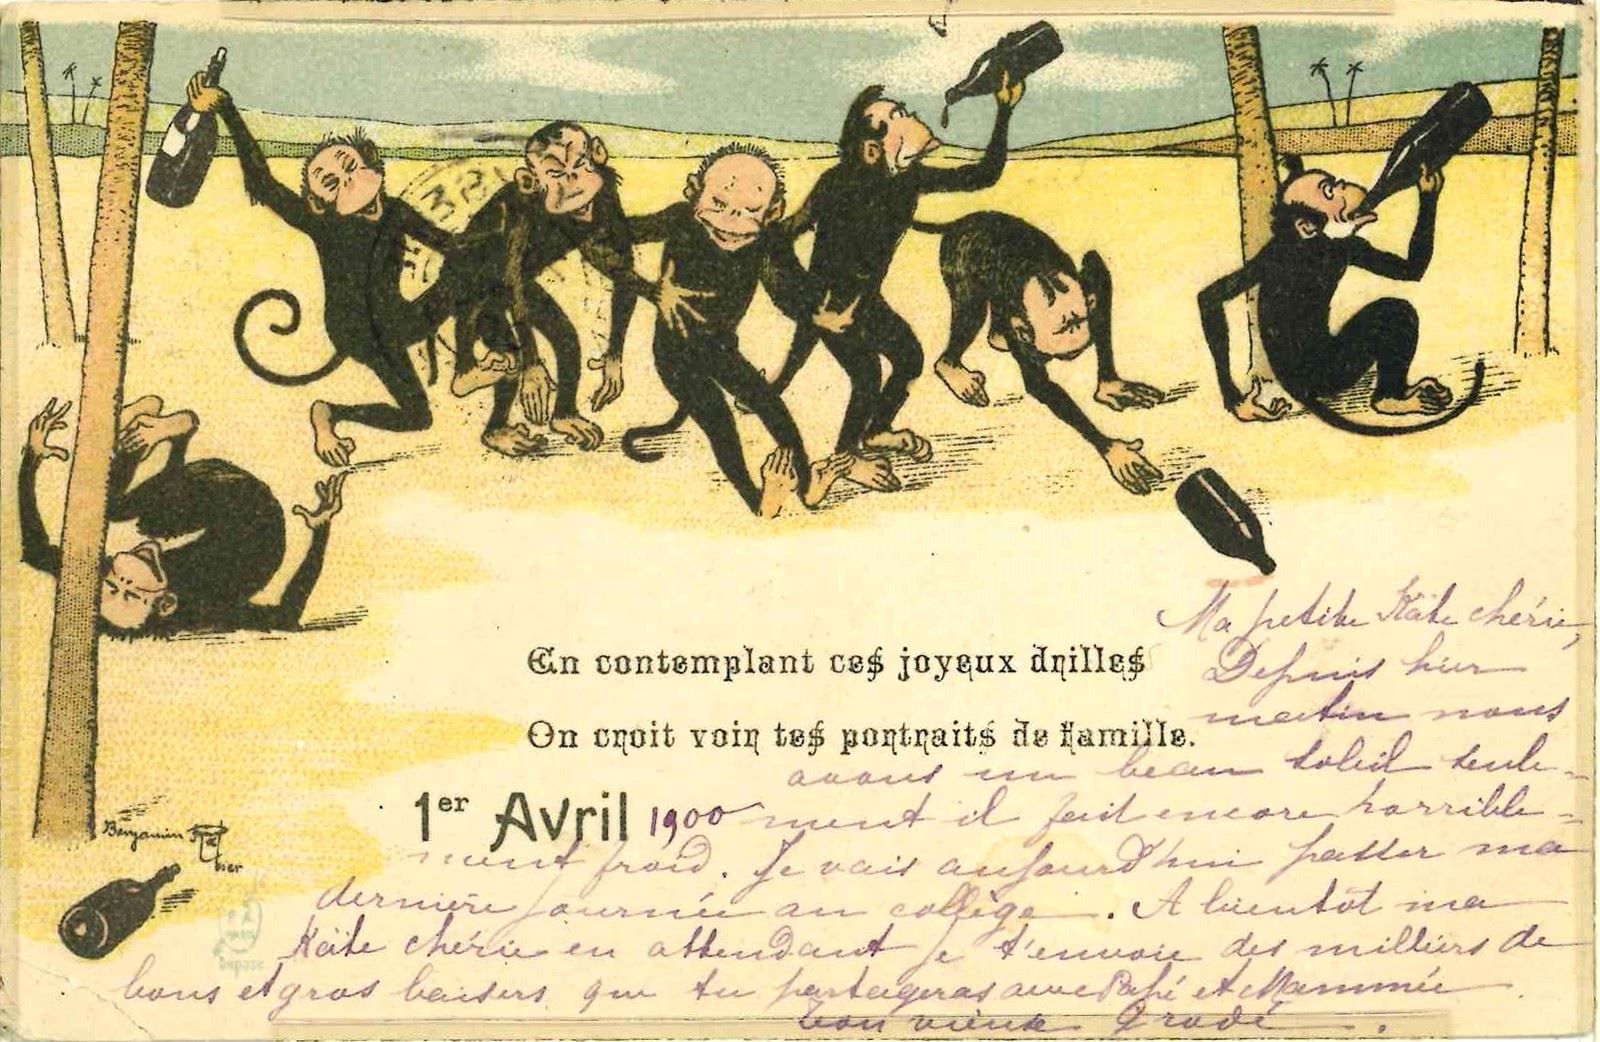 En contemplant ces joyeux drilles
On croit voir tes portraits de famille.
1er Avril 1900
Ma petite Käte chérie,
Depuis hier
matin nous
avons un beau soleil seule-
ment il fait encore horrible-
ment froid. Je vais aujourd'hui passer ma
dernière journée au collège. A bientôt ma
Käte chérie en attendant je t'envoie des milliers de
bons et gros baisers que tu partageras avec Papé et Mammée
ton vieux
Benjamin Rabier
Déposé